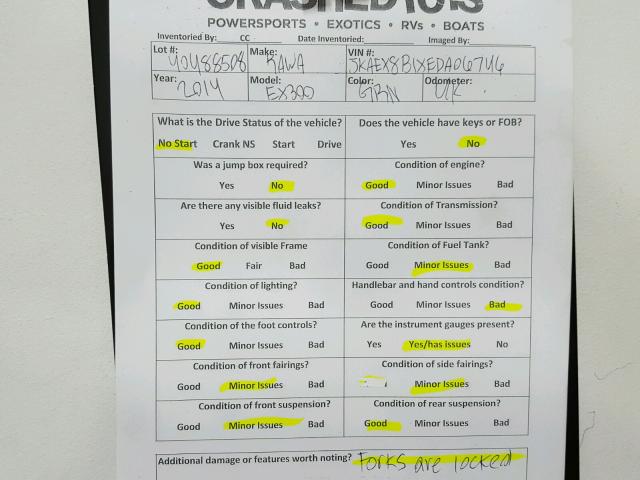 CRASHEDTOYS
POWERSPORTS • EXOTICS • RVs • BOATS
Inventoried By: CC Date Inventoried: Imaged By:
Lot #: 40488508 Make: KAWA VIN #: JKAEX8B1XEDA06746
Year: 2014 Model: EX300 Color: GRN Odometer:
What is the Drive Status of the vehicle? Does the vehicle have keys or FOB?
No Start Crank NS Start Drive Yes No
Was a jump box required? Condition of engine?
Yes No Good Minor Issues Bad
Are there any visible fluid leaks? Condition of Transmission?
Yes No Good Minor Issues Bad
Condition of visible Frame Condition of Fuel Tank?
Good Fair Bad Good Minor Issues Bad
Condition of lighting? Handlebar and hand controls condition?
Good Minor Issues Bad Good Minor Issues Bad
Condition of the foot controls? Are the instrument gauges present?
Good Minor Issues Bad Yes Yes/has issues No
Condition of front fairings? Condition of side fairings?
Good Minor Issues Bad Minor Issues Bad
Condition of front suspension? Condition of rear suspension?
Good Minor Issues Bad Good Minor Issues Bad
Additional damage or features worth noting? Forks are locked